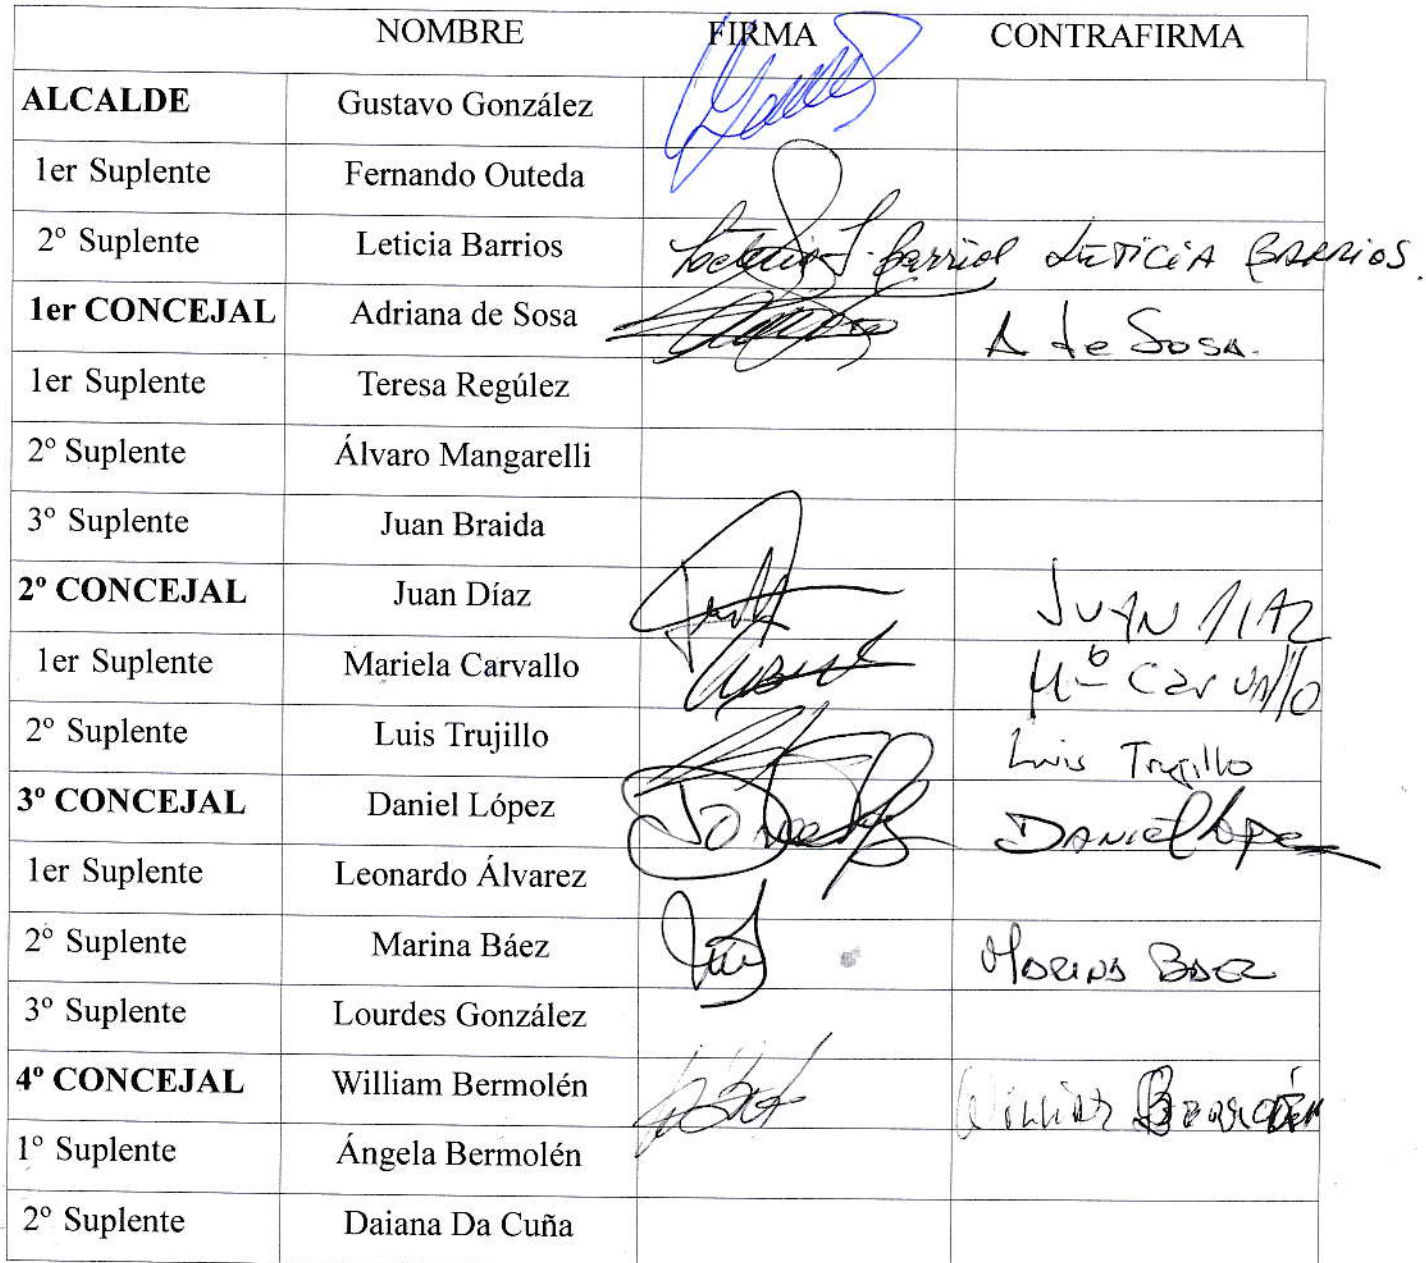 NOMBRE FIRMA CONTRAFIRMA
ALCALDE Gustavo González
1er Suplente Fernando Outeda
2º Suplente Leticia Barrios Leticia J. Barrios LETICIA BARRIOS.
1er CONCEJAL Adriana de Sosa A de Sosa.
1er Suplente Teresa Regúlez
2º Suplente Álvaro Mangarelli
3º Suplente Juan Braida
2º CONCEJAL Juan Díaz JUAN DIAZ
1er Suplente Mariela Carvallo Mª Carvallo
2º Suplente Luis Trujillo Luis Trujillo
3º CONCEJAL Daniel López DANIEL LOPEZ
1er Suplente Leonardo Álvarez
2º Suplente Marina Báez MARINA BAEZ
3º Suplente Lourdes González
4º CONCEJAL William Bermolén William BERMOLÉN
1º Suplente Ángela Bermolén
2º Suplente Daiana Da Cuña